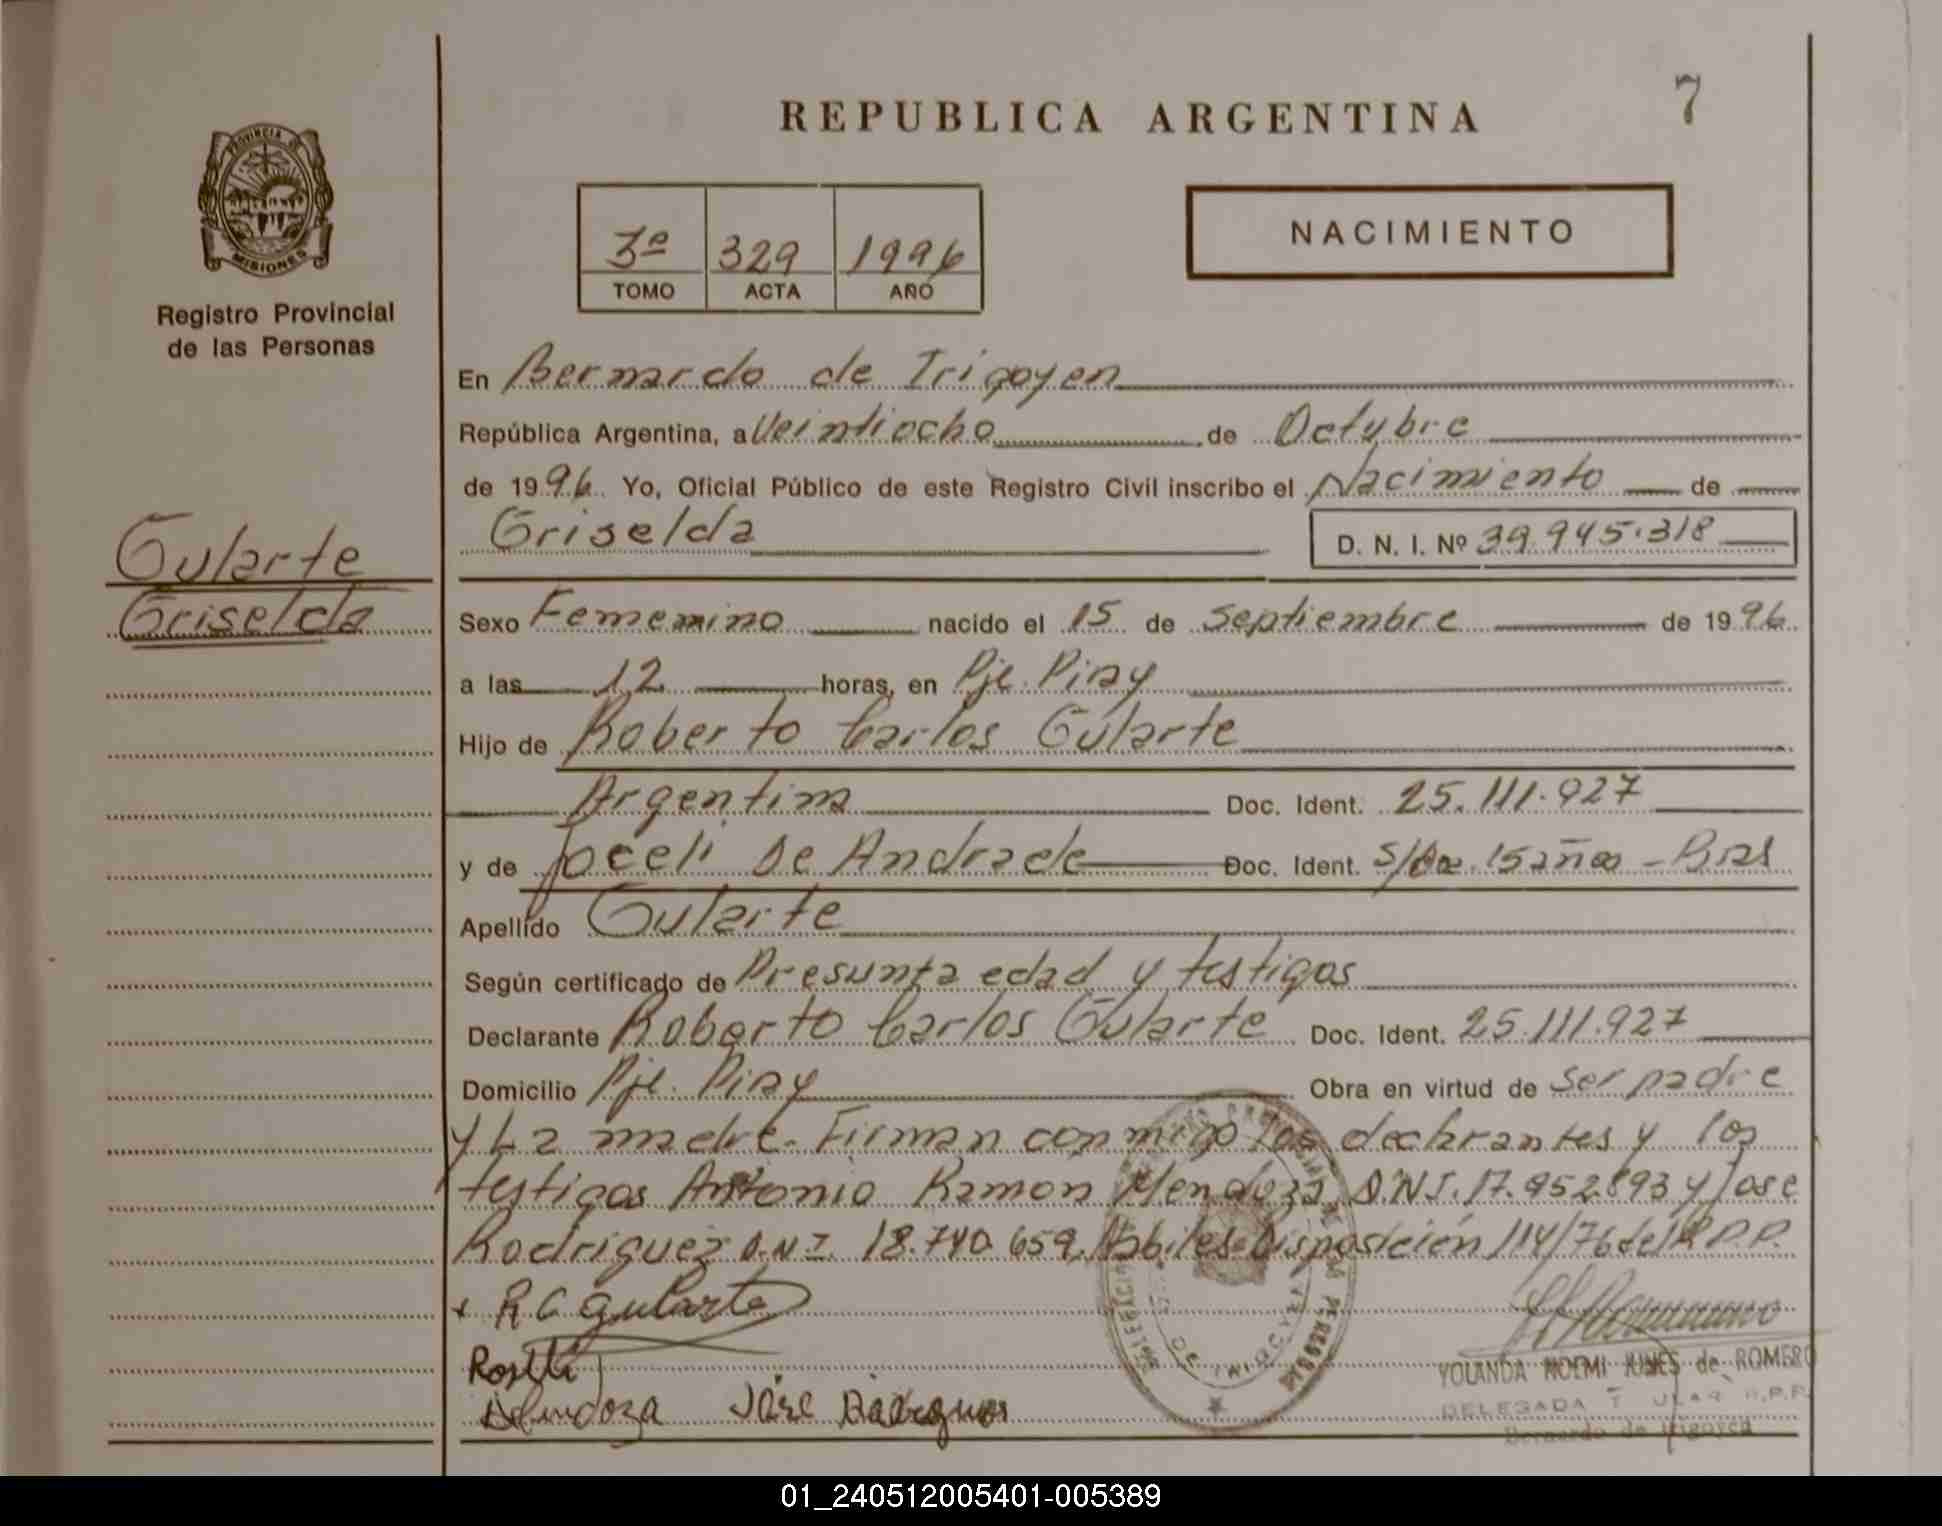 REPUBLICA ARGENTINA
7
PROVINCIA DE
MISIONES
Registro Provincial
de las Personas
3º 329 1996
TOMO ACTA AÑO
NACIMIENTO
En Bernardo de Irigoyen
República Argentina, a Veintiocho de Octubre
de 1996. Yo, Oficial Público de este Registro Civil inscribo el Nacimiento de
Griselda D. N. I. Nº 39.945.318
Gularte
Griselda
Sexo Femenino nacido el 15 de septiembre de 1996.
a las 12 horas, en Pje. Piray
Hijo de Roberto Carlos Gularte
Argentina Doc. Ident. 25.111.927
y de Joceli De Andrade Doc. Ident. 15 años - Bras
Apellido Gularte
Según certificado de Presunta edad y testigos
Declarante Roberto Carlos Gularte Doc. Ident. 25.111.927
Domicilio Pje. Piray Obra en virtud de ser padre
y La madre. Firman conmigo los declarantes y los
testigos Antonio Ramon Mendoza D.N.I. 17.952.893 y Jose
Rodriguez D.N.I. 18.740.659. Habiles Disposición 114/76 del R.P.P.
R C Gularte
Mendoza José
YOLANDA NOEMI JUNES de ROMERO
DELEGADA TITULAR R.P.P.
Bernardo de Irigoyen
01_240512005401-005389